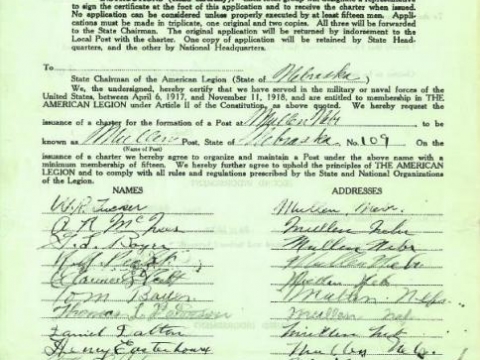 to sign the certificate at the foot of this application and to receive the charter when issued.
No application can be considered unless properly executed by at least fifteen men. Appli-
cations must be made in triplicate, one original and two copies. All three will be forwarded
to the State Chairman. The original application will be returned by indorsement to the
Local Post with charter. One copy of application will be retained by State Head-
quarters, and the other by National Headquarters.
To
State Chairman of the American Legion (State of Nebraska)
We, the undersigned, hereby certify that we have served in the military or naval forces of the
United States, between April 6, 1917, and November 11, 1918, and are entitled to membership in THE
AMERICAN LEGION under Article II of the Constitution, as above quoted. We hereby request the
issuance of a charter for the formation of a Post at Mullen Nebr to be
known as Mullen Post, State of Nebraska No. 109 On the
(Name of Post)
issuance of a charter we hereby agree to organize and maintain a Post under the above name with a
minimum membership of fifteen. We hereby further agree to uphold the principles of THE AMERICAN
LEGION and to comply with all rules and regulations prescribed by the State and National Organizations
of the Legion.
NAMES ADDRESSES
W.R. Tucker Mullen, Nebr.
A R Mullen Nebr
Mullen Nebr
Mullen Nebr
Clarence
Mullen
Thomas Mullen Neb
Daniel Dalton Mullen Neb
Henry Easterhouse